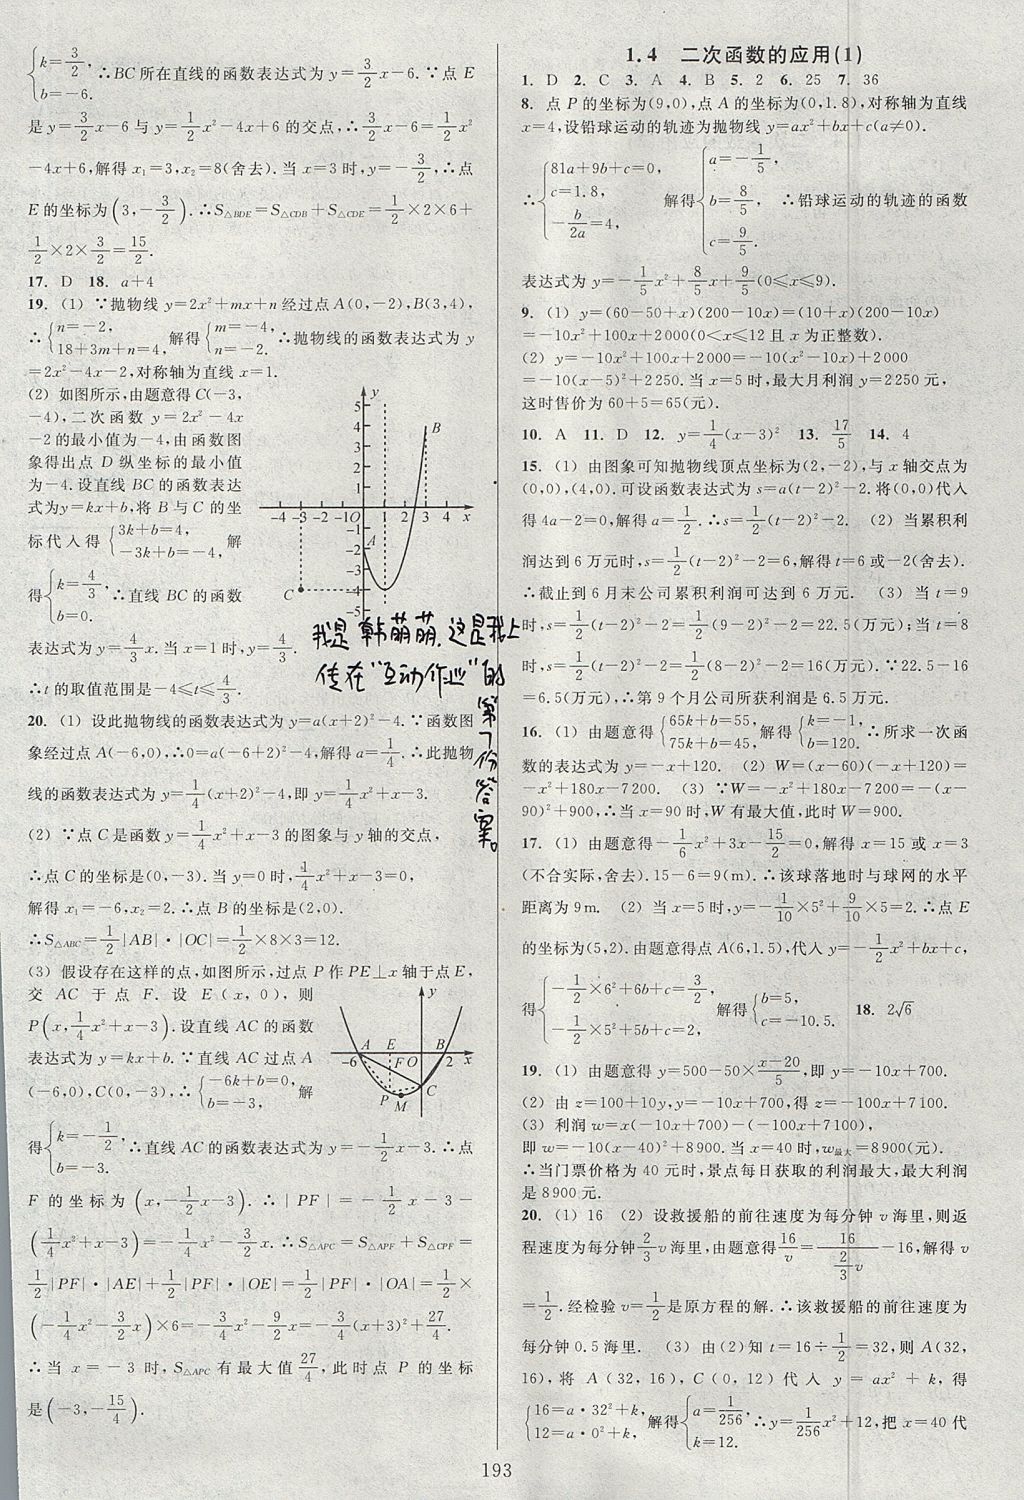 {k=3/2, b=-6. ∴BC所在直线的函数表达式为 y=3/2x-6. ∵点 E
是 y=3/2x-6 与 y=1/2x²-4x+6 的交点,∴3/2x-6=1/2x²
-4x+6,解得 x₁=3,x₂=8(舍去).当 x=3 时,y=-3/2,∴点
E 的坐标为(3,-3/2).∴S△BDE=S△CDB+S△CDE=1/2×2×6+
1/2×2×3/2=15/2.
17. D 18. a+4
19. (1) ∵抛物线 y=2x²+mx+n 经过点 A(0,-2),B(3,4),
∴{n=-2, 18+3m+n=4, 解得{m=-4, n=-2. ∴抛物线的函数表达式为 y
=2x²-4x-2,对称轴为直线 x=1.
(2) 如图所示,由题意得 C(-3,
-4),二次函数 y=2x²-4x
-2的最小值为-4,由函数图
象得出点 D 纵坐标的最小值
为-4.设直线 BC 的函数表达
式为y=kx+b,将 B 与 C 的坐
标代入得{3k+b=4, -3k+b=-4, 解
得{k=4/3, b=0. ∴直线 BC 的函数
表达式为 y=4/3x.当 x=1 时,y=4/3.
∴t 的取值范围是-4≤t≤4/3.
y
5
4
3
2
1
B
-4 -3 -2 -1 O 1 2 3 4 x
-1
A
-2
-3
C
-4
-5
我是韩萌萌.这是我上
传在"互动作业"的
第7份答案。
20. (1) 设此抛物线的函数表达式为 y=a(x+2)²-4.∵函数图
象经过点 A(-6,0),∴0=a(-6+2)²-4,解得 a=1/4.∴此抛物
线的函数表达式为 y=1/4(x+2)²-4,即 y=1/4x²+x-3.
(2) ∵点 C 是函数 y=1/4x²+x-3 的图象与 y 轴的交点,
∴点 C 的坐标是(0,-3).当 y=0 时,1/4x²+x-3=0,
解得 x₁=-6,x₂=2.∴点 B 的坐标是(2,0).
∴S△ABC=1/2|AB|·|OC|=1/2×8×3=12.
(3) 假设存在这样的点,如图所示,过点 P 作 PE⊥x 轴于点 E,
交 AC 于点 F.设 E(x,0),则
P(x,1/4x²+x-3).设直线 AC 的函数
表达式为 y=kx+b.∵直线 AC 过点 A
(-6,0),C(0,-3),∴{-6k+b=0, b=-3, 解
得{k=-1/2, b=-3. ∴直线 AC 的函数表达式为 y=-1/2x-3.∴点
y
A E B
-6 F O 2 x
P M C
F 的坐标为(x,-1/2x-3).∴|PF|=-1/2x-3-
(1/4x²+x-3)=-1/4x²-3/2x.∴S△APC=S△APF+S△CPF=
1/2|PF|·|AE|+1/2|PF|·|OE|=1/2|PF|·|OA|=1/2×
(-1/4x²-3/2x)×6=-3/4x²-9/2x=-3/4(x+3)²+27/4.
∴当 x=-3 时,S△APC 有最大值27/4,此时点 P 的坐标
是(-3,-15/4).
1.4 二次函数的应用(1)
1. D 2. C 3. A 4. B 5. 2 6. 25 7. 36
8. 点 P 的坐标为(9,0),点 A 的坐标为(0,1.8),对称轴为直线
x=4,设铅球运动的轨迹为抛物线 y=ax²+bx+c(a≠0).
∴{81a+9b+c=0, c=1.8, -b/2a=4, 解得{a=-1/5, b=8/5, c=9/5. ∴铅球运动的轨迹的函数
表达式为 y=-1/5x²+8/5x+9/5(0≤x≤9).
9. (1) y=(60-50+x)(200-10x)=(10+x)(200-10x)
=-10x²+100x+2000(0<x≤12 且 x 为正整数).
(2) y=-10x²+100x+2000=-10(x²-10x)+2000
=-10(x-5)²+2250.当 x=5 时,最大月利润 y=2250 元,
这时售价为 60+5=65(元).
10. A 11. D 12. y=1/4(x-3)² 13. 17/5 14. 4
15. (1) 由图象可知抛物线顶点坐标为(2,-2),与 x 轴交点为
(0,0),(4,0).可设函数表达式为 s=a(t-2)²-2.将(0,0)代入
得 4a-2=0,解得 a=1/2.∴s=1/2(t-2)²-2. (2) 当累积利
润达到 6 万元时,s=1/2(t-2)²-2=6,解得 t=6或-2(舍去).
∴截止到 6 月末公司累积利润可达到 6 万元. (3) 当 t=9
时,s=1/2(t-2)²-2=1/2(9-2)²-2=22.5(万元);当 t=8
时,s=1/2(t-2)²-2=1/2(8-2)²-2=16(万元).∵22.5-16
=6.5(万元),∴第 9 个月公司所获利润是 6.5 万元.
16. (1) 由题意得{65k+b=55, 75k+b=45, 解得{k=-1, b=120. ∴所求一次函
数的表达式为 y=-x+120. (2) W=(x-60)(-x+120)=
-x²+180x-7200. (3) ∵W=-x²+180x-7200=-(x-
90)²+900,∴当 x=90 时,W 有最大值,此时 W=900.
17. (1) 由题意得-1/6x²+3x-15/2=0,解得 x=15 或 x=3
(不合实际,舍去).15-6=9(m).∴该球落地时与球网的水平
距离为 9 m. (2) 当 x=5 时,y=-1/10×5²+9/10×5=2.∴点 E
的坐标为(5,2).由题意得点 A(6,1.5),代入 y=-1/2x²+bx+c,
得{-1/2×6²+6b+c=3/2, -1/2×5²+5b+c=2, 解得{b=5, c=-10.5. 18. 2√6
19. (1) 由题意得 y=500-50×(x-20)/5,即 y=-10x+700.
(2) 由 z=100+10y,y=-10x+700,得 z=-100x+7100.
(3) 利润 w=x(-10x+700)-(-100x+7100),
即 w=-10(x-40)²+8900.当 x=40 时,w最大=8900(元).
∴当门票价格为 40 元时,景点每日获取的利润最大,最大利润
是 8900 元.
20. (1) 16 (2) 设救援船的前往速度为每分钟 v 海里,则返
程速度为每分钟2/3v 海里,由题意得16/v=16/(2/3v)-16,解得 v
=1/2.经检验 v=1/2是原方程的解.∴该救援船的前往速度为
每分钟 0.5 海里. (3) 由(2)知 t=16÷1/2=32,则 A(32,
16),将 A(32,16),C(0,12)代入 y=ax²+k,得
{16=a·32²+k, 12=a·0²+k, 解得{a=1/256, k=12. ∴y=1/256x²+12,把 x=40 代
193